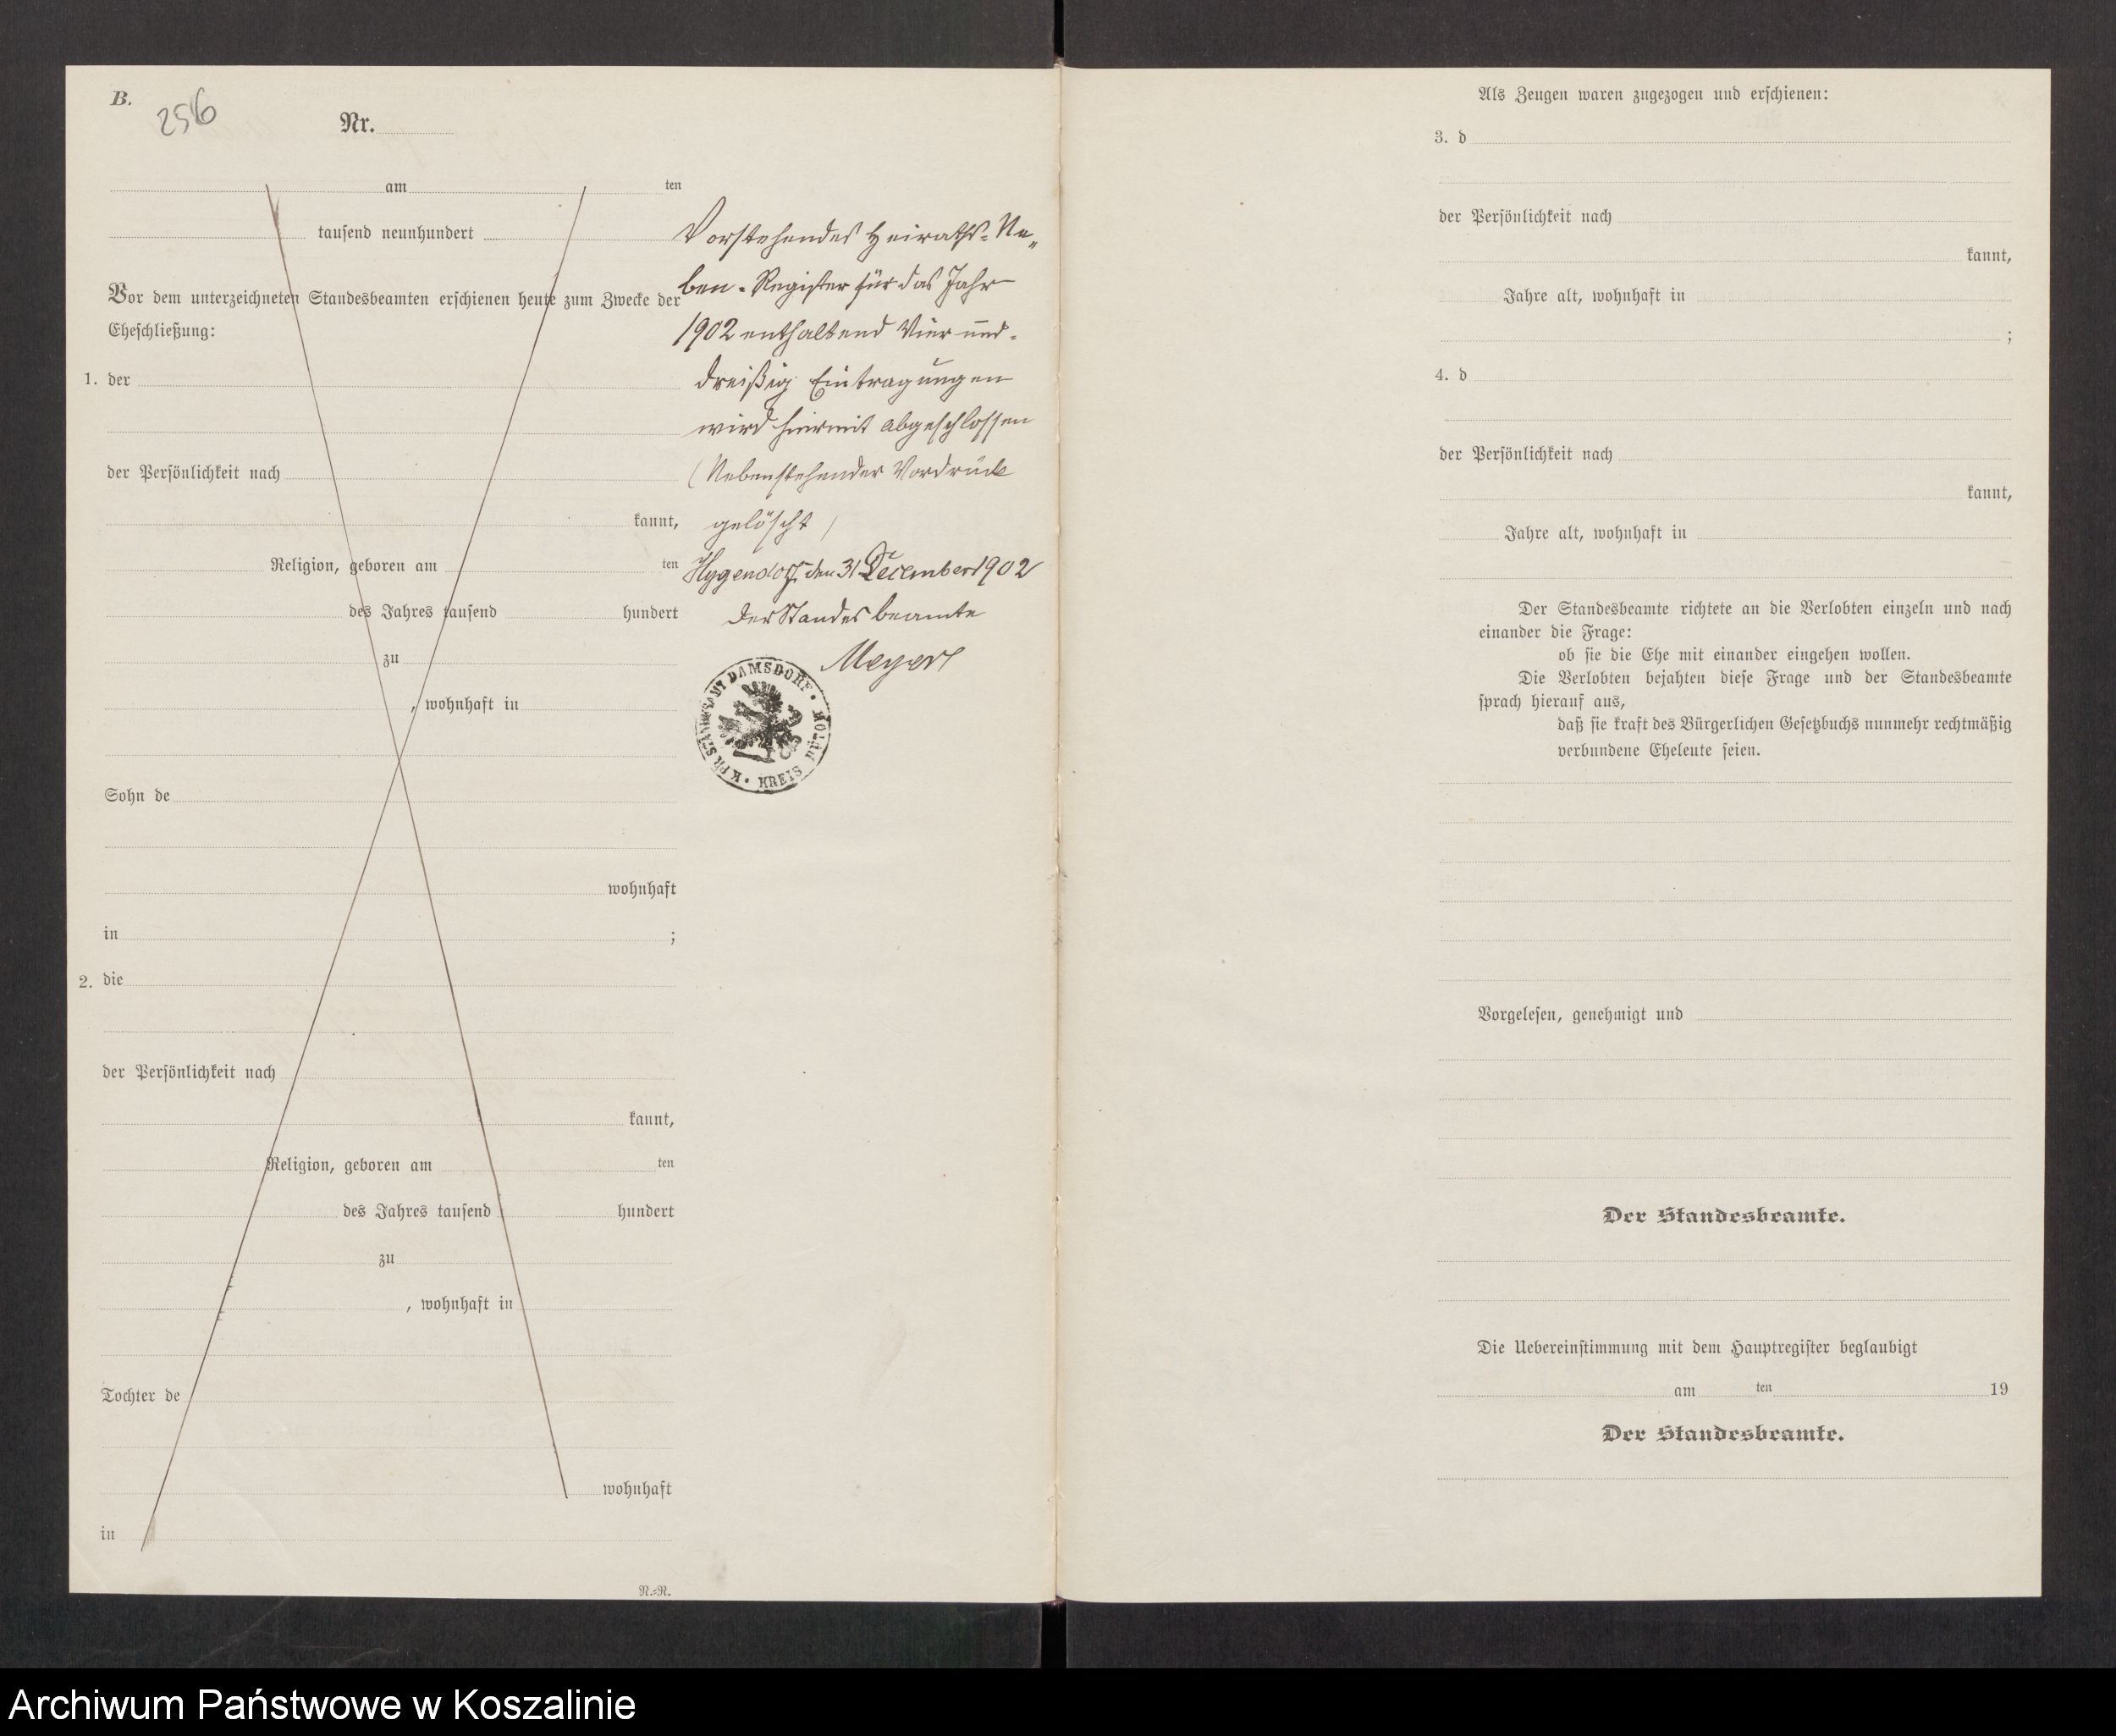 B.
256
Nr.
am ten
tausend neunhundert
Vor dem unterzeichneten Standesbeamten erschienen heute zum Zwecke der
Eheschließung:
1. der
der Persönlichkeit nach
kannt,
Religion, geboren am ten
des Jahres tausend hundert
zu
, wohnhaft in
Sohn de
wohnhaft
in ;
2. die
der Persönlichkeit nach
kannt,
Religion, geboren am ten
des Jahres tausend hundert
zu
, wohnhaft in
Tochter de
wohnhaft
in
N.=R.
Vorstehendes Heiraths=Ne„
ben-Register für das Jahr
1902 enthaltend Vier und-
dreißig Eintragungen
wird hiermit abgeschlossen
(Nebenstehender Vordruck
gelöscht)
den 31 December 1902
Der Standesbeamte
Meyer
K. PR. STANDESAMT DAMSDORF • KREIS BÜTOW •
Als Zeugen waren zugezogen und erschienen:
3. d
der Persönlichkeit nach
kannt,
Jahre alt, wohnhaft in
;
4. d
der Persönlichkeit nach
kannt,
Jahre alt, wohnhaft in
Der Standesbeamte richtete an die Verlobten einzeln und nach
einander die Frage:
ob sie die Ehe mit einander eingehen wollen.
Die Verlobten bejahten diese Frage und der Standesbeamte
sprach hierauf aus,
daß sie kraft des Bürgerlichen Gesetzbuchs nunmehr rechtmäßig
verbundene Eheleute seien.
Vorgelesen, genehmigt und
Der Standesbeamte.
Die Uebereinstimmung mit dem Hauptregister beglaubigt
am ten 19
Der Standesbeamte.
Archiwum Państwowe w Koszalinie